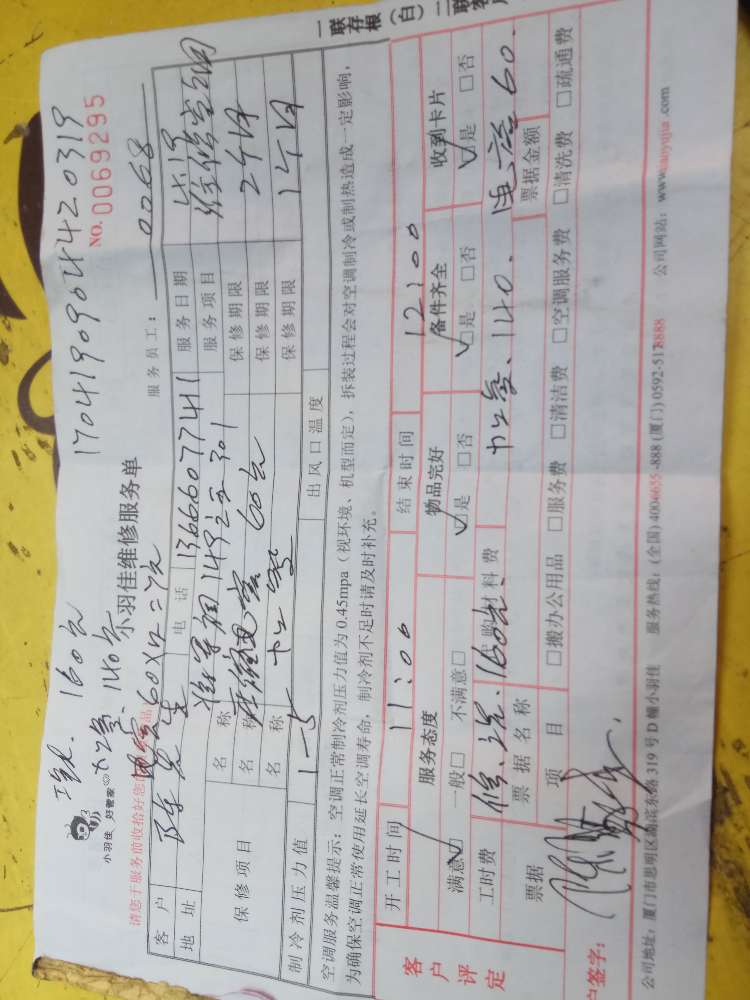 一联存根(白)二联客户
170419090442 0319
No. 0069295
工费. 160元
140元
小羽佳 好管家
小羽佳维修服务单
请您于服务前收拾好您
服务员工: 0068
客户 陈先生 电话 13666077411 服务日期 4.19
地址 服务项目
保修项目 名称 保修期限 2个月
名称 60元 保修期限 1个月
名称 保修期限
制冷剂压力值 出风口温度
空调服务温馨提示:空调正常制冷剂压力值为0.45mpa(视环境、机型而定),拆装过程会对空调制冷或制热造成一定影响,
为确保空调正常使用延长空调寿命,制冷剂不足时请及时补充。
客户评定
开工时间 11:00 结束时间 12:00
服务态度 物品完好 备件齐全 收到卡片
满意☑ 一般□ 不满意□ ☑是 □否 ☑是 □否 ☑是 □否
工时费 160元 代购材料费 140. 60.
票据 票据名称 票据金额
项目 □搬办公用品 □服务费 □清洁费 □空调服务费 □清洗费 □疏通费
户签字:
公司地址:厦门市思明区湖滨东路319号D幢小羽佳 服务热线:(全国)4004655-888(厦门)0592-5178888 公司网站:www.xiaoyujia.com